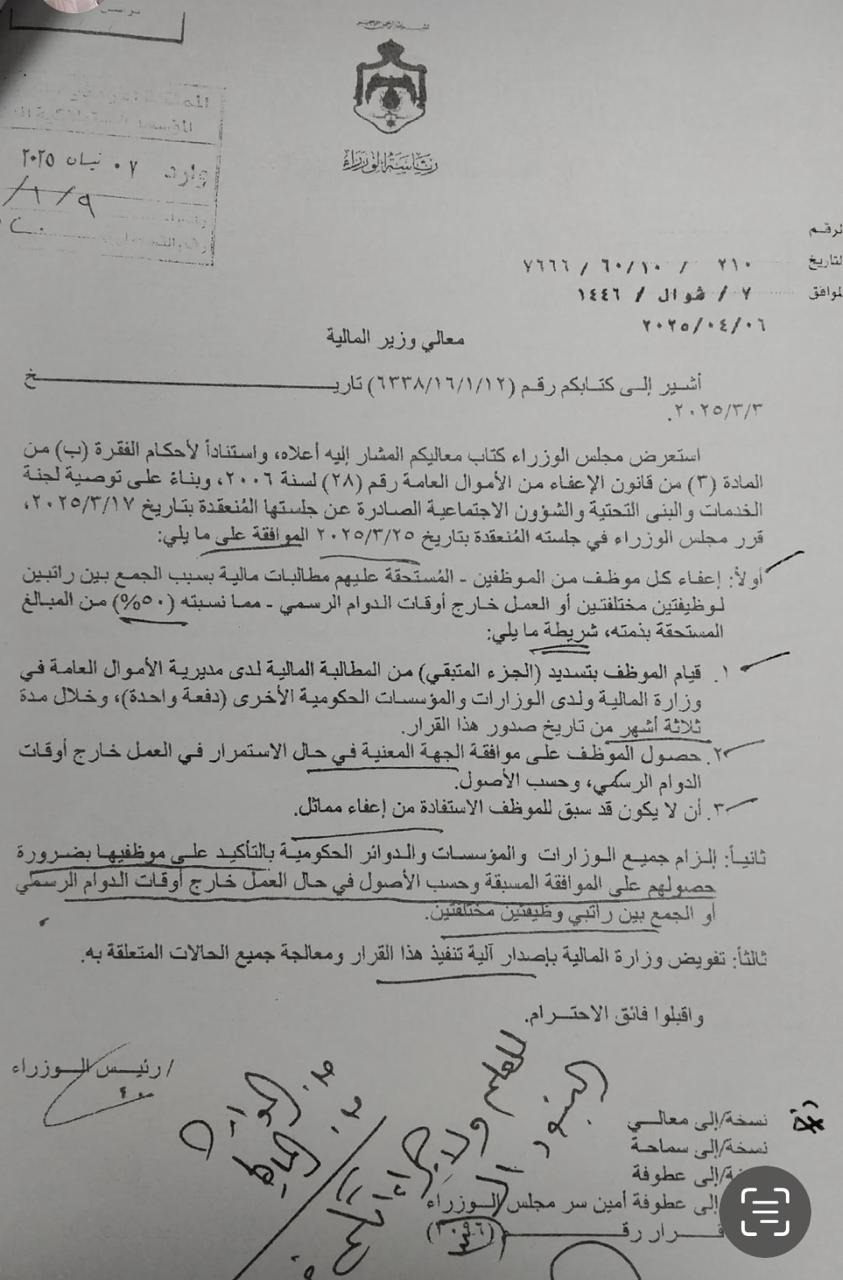 رئاسة الوزراء
وارد ٠٧ نيسان ٢٠٢٥
الرقم
التاريخ ٢١٠ / ٦٠/١٠ / ٧٦٦٦
الموافق ٧ / شوال / ١٤٤٦
٢٠٢٥/٠٤/٠٦
معالي وزير المالية
أشير إلى كتابكم رقم (٦٣٣٨/١٦/١/١٢) تاريـــخ
٢٠٢٥/٣/٣.
استعرض مجلس الوزراء كتاب معاليكم المشار إليه أعلاه، واستناداً لأحكام الفقرة (ب) من
المادة (٣) من قانون الإعفاء من الأموال العامة رقم (٢٨) لسنة ٢٠٠٦، وبناءً على توصية لجنة
الخدمات والبنى التحتية والشؤون الاجتماعية الصادرة عن جلستها المُنعقدة بتاريخ ٢٠٢٥/٣/١٧،
قرر مجلس الوزراء في جلسته المُنعقدة بتاريخ ٢٠٢٥/٣/٢٥ الموافقة على ما يلي:
أولاً: إعفاء كل موظف من الموظفين - المُستحقة عليهم مطالبات مالية بسبب الجمع بين راتبين
لوظيفتين مختلفتين أو العمل خارج أوقات الدوام الرسمي - مما نسبته (٥٠%) من المبالغ
المستحقة بذمته، شريطة ما يلي:
١. قيام الموظف بتسديد (الجزء المتبقي) من المطالبة المالية لدى مديرية الأموال العامة في
وزارة المالية ولدى الوزارات والمؤسسات الحكومية الأخرى (دفعة واحدة)، وخلال مدة
ثلاثة أشهر من تاريخ صدور هذا القرار.
٢. حصول الموظف على موافقة الجهة المعنية في حال الاستمرار في العمل خارج أوقات
الدوام الرسمي، وحسب الأصول.
٣. أن لا يكون قد سبق للموظف الاستفادة من إعفاء مماثل.
ثانياً: إلزام جميع الوزارات والمؤسسات والدوائر الحكومية بالتأكيد على موظفيها بضرورة
حصولهم على الموافقة المسبقة وحسب الأصول في حال العمل خارج أوقات الدوام الرسمي
أو الجمع بين راتبي وظيفتين مختلفتين.
ثالثاً: تفويض وزارة المالية بإصدار آلية تنفيذ هذا القرار ومعالجة جميع الحالات المتعلقة به.
واقبلوا فائق الاحترام.
/ رئيس الوزراء
نسخة/إلى معالي
نسخة/إلى سماحة
إلى عطوفة
إلى عطوفة أمين سر مجلس الوزراء
قرار رقم